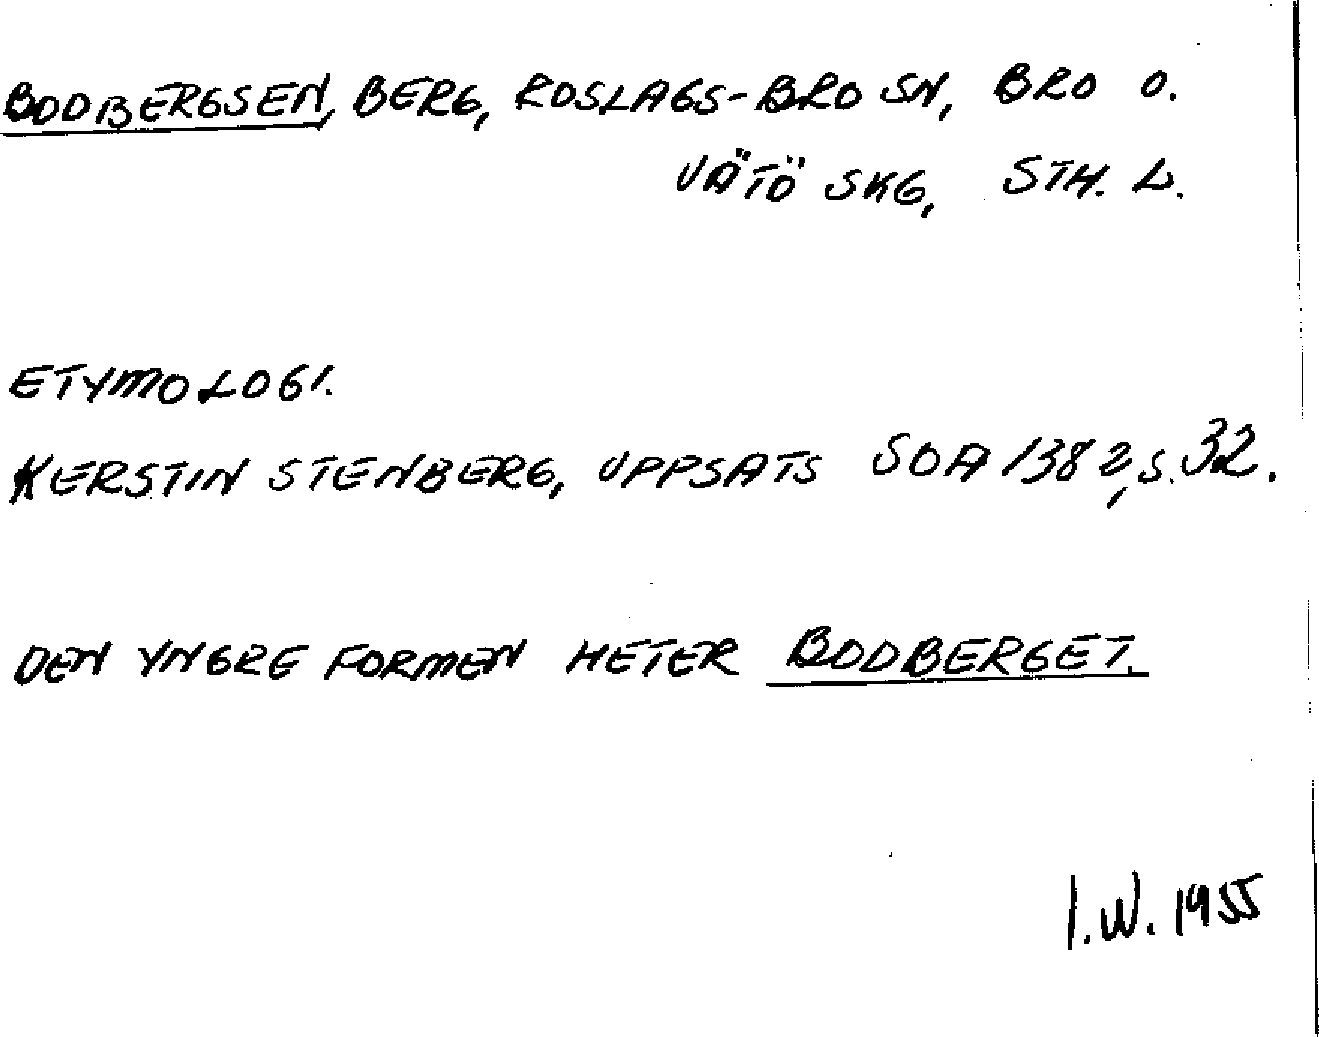 BODBERGSEN, BERG, ROSLAGS-BRO SN, BRO O.
VÄTÖ SKG, STH. L.
ETYMOLOGI.
KERSTIN STENBERG, UPPSATS SOA 1382, S. 32.
DEN YNGRE FORMEN HETER BODBERGET.
I.W. 1955